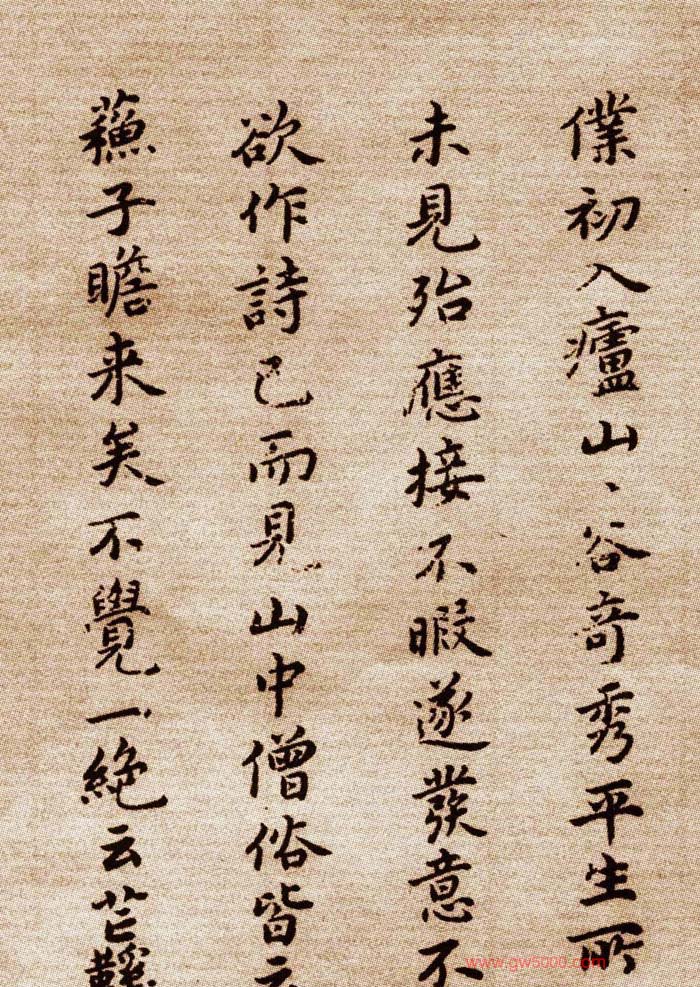 僕初入廬山、谷奇秀平生所
未見殆應接不暇遂發意不
欲作詩已而見山中僧俗皆云
蘓子瞻来矣不覺一絶云芒鞵
www.gw5000.com